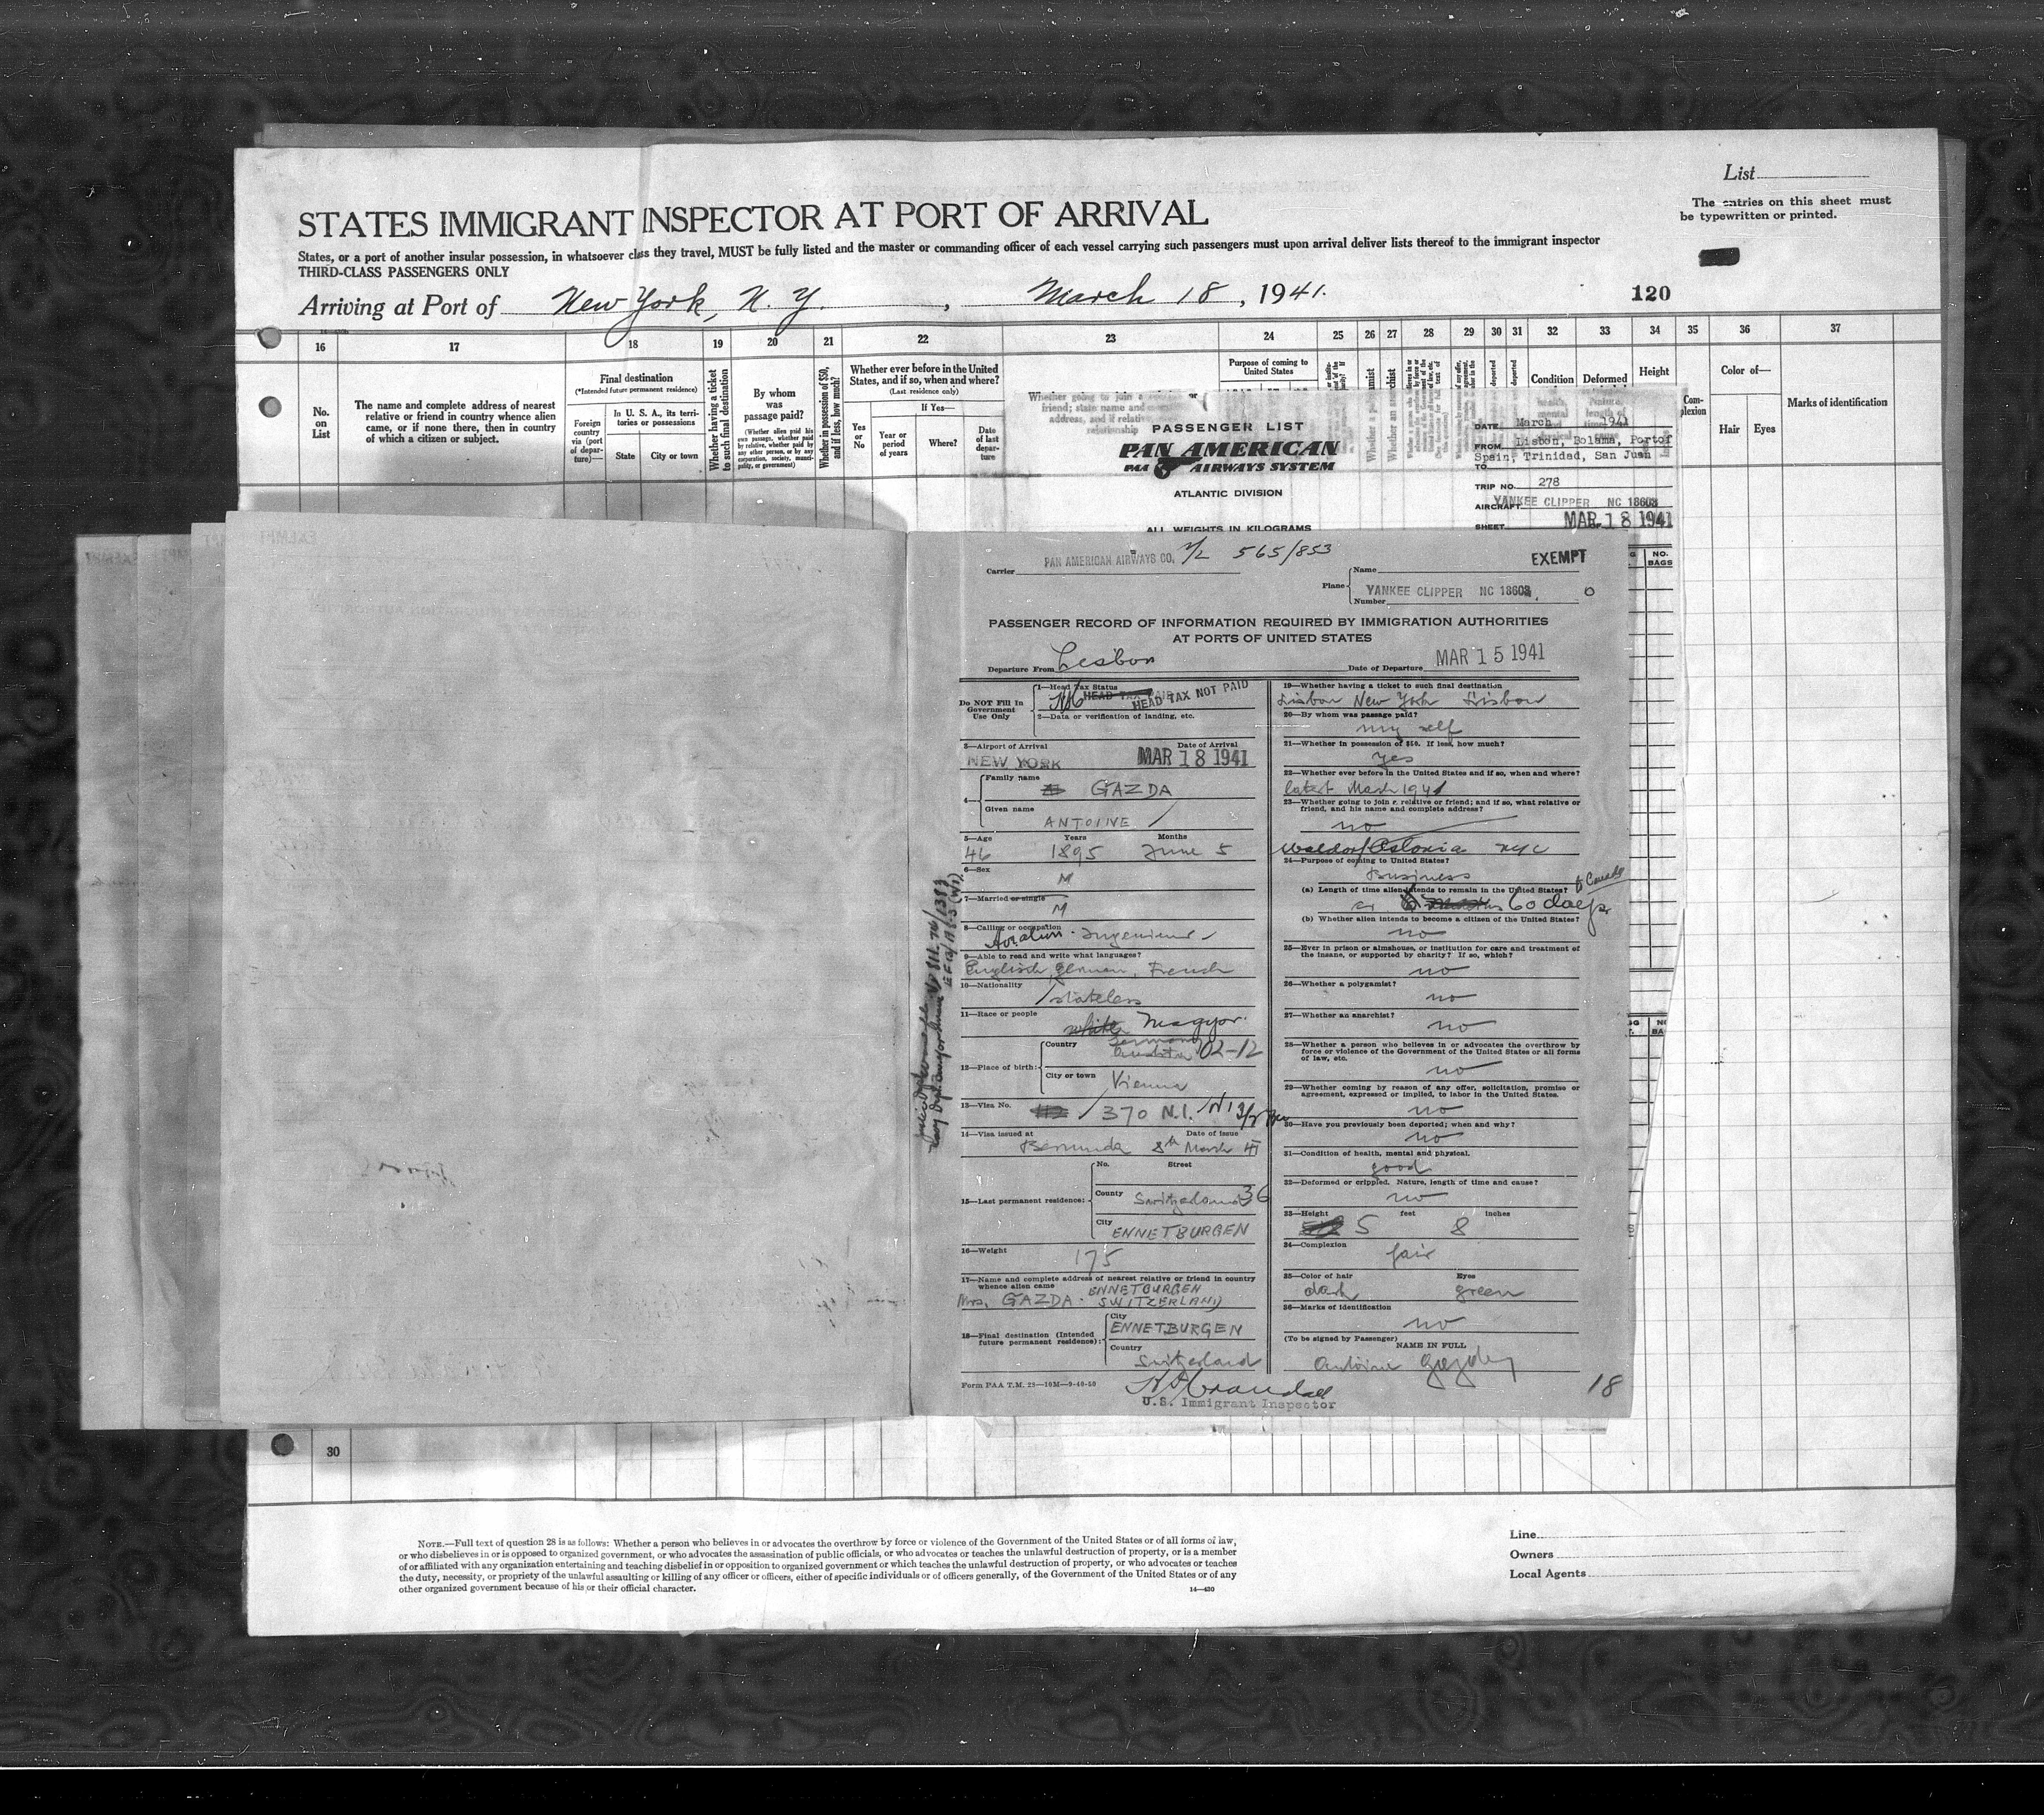 List
The entries on this sheet must
be typewritten or printed.
STATES IMMIGRANT INSPECTOR AT PORT OF ARRIVAL
States, or a port of another insular possession, in whatsoever class they travel, MUST be fully listed and the master or commanding officer of each vessel carrying such passengers must upon arrival deliver lists thereof to the immigrant inspector
THIRD-CLASS PASSENGERS ONLY
Arriving at Port of New York, N. Y., March 18, 1941.
120
16 17 18 19 20 21 22 23 24 25 26 27 28 29 30 31 32 33 34 35 36 37
No. on List
The name and complete address of nearest
relative or friend in country whence alien
came, or if none there, then in country
of which a citizen or subject.
Final destination
(*Intended future permanent residence)
Foreign country via (port of departure)—
In U. S. A., its territories or possessions
State
City or town
Whether having a ticket to such final destination
By whom was passage paid?
(Whether alien paid his own passage, whether paid by relative, whether paid by any other person, or by any corporation, society, municipality, or government)
Whether in possession of $50, and if less, how much?
Whether ever before in the United
States, and if so, when and where?
(Last residence only)
Yes or No
If Yes—
Year or period of years
Where?
Date of last departure
Whether going to join a relative or
friend; state name and
address, and if relative,
relationship
Purpose of coming to
United States
Condition
Deformed
Height
Complexion
Color of—
Hair
Eyes
Marks of identification
PASSENGER LIST
PAN AMERICAN
PAA AIRWAYS SYSTEM
ATLANTIC DIVISION
ALL WEIGHTS IN KILOGRAMS
DATE March 1941
FROM Lisbon, Bolama, Portof
Spain, Trinidad, San Juan
TO
TRIP NO. 278
AIRCRAFT YANKEE CLIPPER NC 18603
SHEET MAR 18 1941
NO. BAGS
Carrier PAN AMERICAN AIRWAYS CO. 565/853
EXEMPT
Plane
Name
YANKEE CLIPPER NC 18603
Number
PASSENGER RECORD OF INFORMATION REQUIRED BY IMMIGRATION AUTHORITIES
AT PORTS OF UNITED STATES
Departure From Lisbon
Date of Departure MAR 15 1941
Do NOT Fill In
Government
Use Only
1—Head Tax Status
HEAD TAX NOT PAID
2—Data or verification of landing, etc.
3—Airport of Arrival
Date of Arrival
NEW YORK
MAR 18 1941
4—
Family name
GAZDA
Given name
ANTOINE
5—Age Years Months
46 1895 June 5
6—Sex
M
7—Married or single
M
8—Calling or occupation
Aviation Ingenieur
9—Able to read and write what languages?
Englisch, German, French
10—Nationality
stateless
11—Race or people
white Magyar
12—Place of birth:
Country
Germany
02-12
City or town
Vienna
13—Visa No.
370 N.I.
14—Visa issued at
Date of issue
Bermuda 8th March 41
15—Last permanent residence:
No. Street
County
Switzerland 36
City
ENNETBURGEN
16—Weight
175
17—Name and complete address of nearest relative or friend in country
whence alien came
ENNETBURGEN
Mrs. GAZDA. SWITZERLAND
18—Final destination (Intended
future permanent residence):
City
ENNETBURGEN
Country
Switzerland
Form PAA T.M. 28—10M—9-40-50
U.S. Immigrant Inspector
19—Whether having a ticket to such final destination
Lisbon New York Lisbon
20—By whom was passage paid?
my self
21—Whether in possession of $50. If less, how much?
Yes
22—Whether ever before in the United States and if so, when and where?
latest March 1941
23—Whether going to join a relative or friend; and if so, what relative or
friend, and his name and complete address?
no
Waldorf Astoria NYC
24—Purpose of coming to United States?
Business
to Canada
(a) Length of time alien intends to remain in the United States?
60 days
(b) Whether alien intends to become a citizen of the United States?
no
25—Ever in prison or almshouse, or institution for care and treatment of
the insane, or supported by charity? If so, which?
no
26—Whether a polygamist?
no
27—Whether an anarchist?
no
28—Whether a person who believes in or advocates the overthrow by
force or violence of the Government of the United States or all forms
of law, etc.
no
29—Whether coming by reason of any offer, solicitation, promise or
agreement, expressed or implied, to labor in the United States.
no
30—Have you previously been deported; when and why?
no
31—Condition of health, mental and physical.
good
32—Deformed or crippled. Nature, length of time and cause?
no
33—Height feet inches
5 8
34—Complexion
fair
35—Color of hair Eyes
dark green
36—Marks of identification
no
(To be signed by Passenger)
NAME IN FULL
Antoine Gazda
18
30
NOTE.—Full text of question 28 is as follows: Whether a person who believes in or advocates the overthrow by force or violence of the Government of the United States or of all forms of law,
or who disbelieves in or is opposed to organized government, or who advocates the assassination of public officials, or who advocates or teaches the unlawful destruction of property, or is a member
of or affiliated with any organization entertaining and teaching disbelief in or opposition to organized government or which teaches the unlawful destruction of property, or who advocates or teaches
the duty, necessity, or propriety of the unlawful assaulting or killing of any officer or officers, either of specific individuals or of officers generally, of the Government of the United States or of any
other organized government because of his or their official character.
14—430
Line
Owners
Local Agents